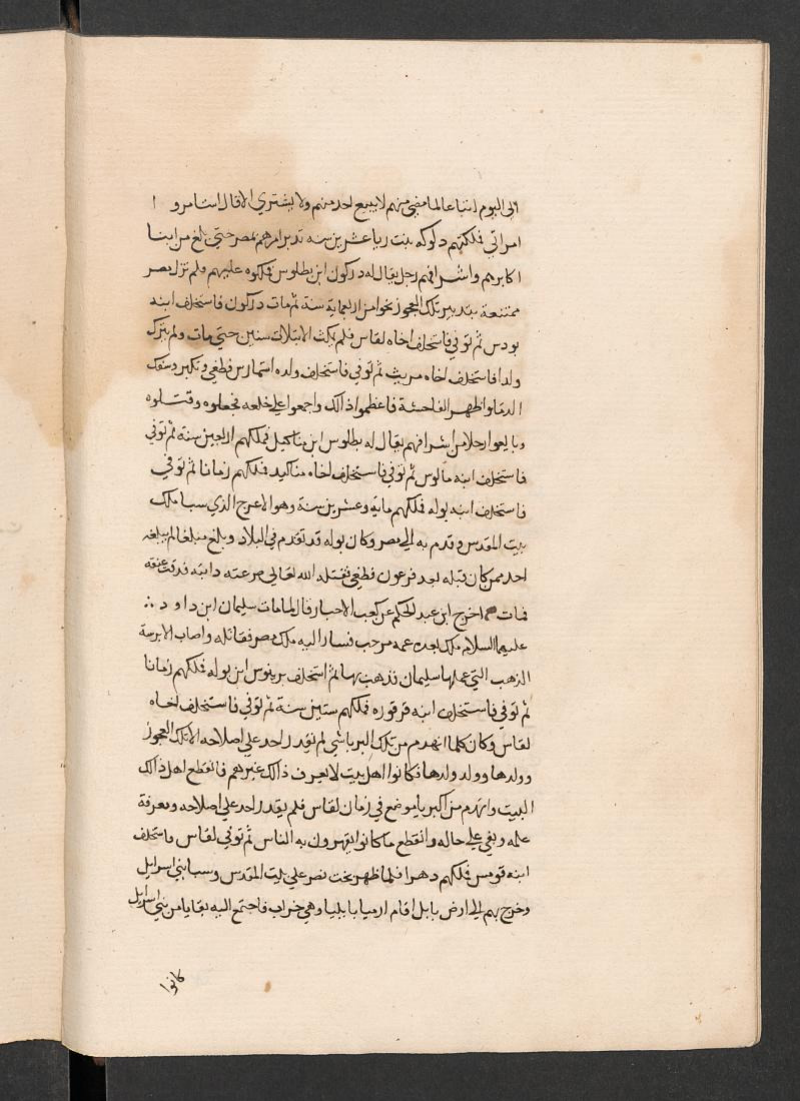 الى اليوم اتباعا لما مضى منهم لا يبيع احد منهم ولا يشتري الا قال استامر و ا
امراتي فملكتهم دلوكه بنت ريا عشرين سنه تدبر امرهم بمصر حتى بلغ من ابنا
اكابرهم واشرافهم رجل يقال له دركون ابن بطلوس فملكوه عليهم ولم تزل مصر
ممتنعة بتدبير تلك العجوز نحوا من اربعماية سنة ثم مات دركون فاستخلف ابنه
بودس ثم توفي فاستخلف اخاه لقاس فلم يمكث الا ثلاث سنين حتى مات ولم يترك
ولدا فاستخلف اخاه مرينا ثم توفي فاستخلف ولده استمارس فطغى وتكبر وسفك
الدما واظهر الفاحشة فاعظموا ذالك واجمعوا على خلعه فخلعوه وقتلوه
وبايعوا رجلا من اشرافهم يقال له بطلوس ابن مناكيل فملكهم اربعين سنة ثم توفي
فاستخلف ابنه مالوس ثم توفي فاستخلف اخاه مناكيد فملكهم زمانا ثم توفي
فاستخلف ابنه بوله فملكهم ماية وعشرين سنة وهو الاعرج الذي سبا ملك
بيت المقدس وقدم به الى مصر وكان بوله قد تقدم في البلاد وبلغ مبلغا لم يبلغه
احد ممن كان قبله بعد فرعون فطغى فقتله الله تعالى صرعته دابته فدقت عنقه
فمات اخرج ابن عبد الحكم عن كعب الاحبار قال لما مات سليمان ابن داود ∴
عليهما السلام ملك بعده عمه مرحب فسار اليه ملك مصر فقاتله واصاب الاترسة
الذهب التي عملها سليمان فذهب بها ثم استخلف برينوس ابن بوله فملكهم زمانا
ثم توفي فاستخلف ابنه قرقوره فملكهم ستين سنة ثم توفي فاستخلف اخاه
لقاس وكان كلما انهدم من تلك البربا شي لم يقدر احد على اصلاحه الا تلك العجوز
وولدها وولد ولدها فكانوا اهل بيت لا يعرف ذالك غيرهم فانقطع اهل ذالك
البيت وانهدم من البربا موضع في زمان لقاس فلم يقدر احد على اصلاحه ومعرفة
علمه وبقي على حاله وانقطع ما كانوا يقهرون به الناس ثم توفي لقاس فاستخلف
ابنه قومس فملكهم دهرا فلما ظهر بخت نصر على بيت المقدس وسبا بني اسرايل
وخرج بهم الى ارض بابل اقام ارميا بايليا وهي خراب فاجتمع اليه بقايا من بني اسرايل
كانوا